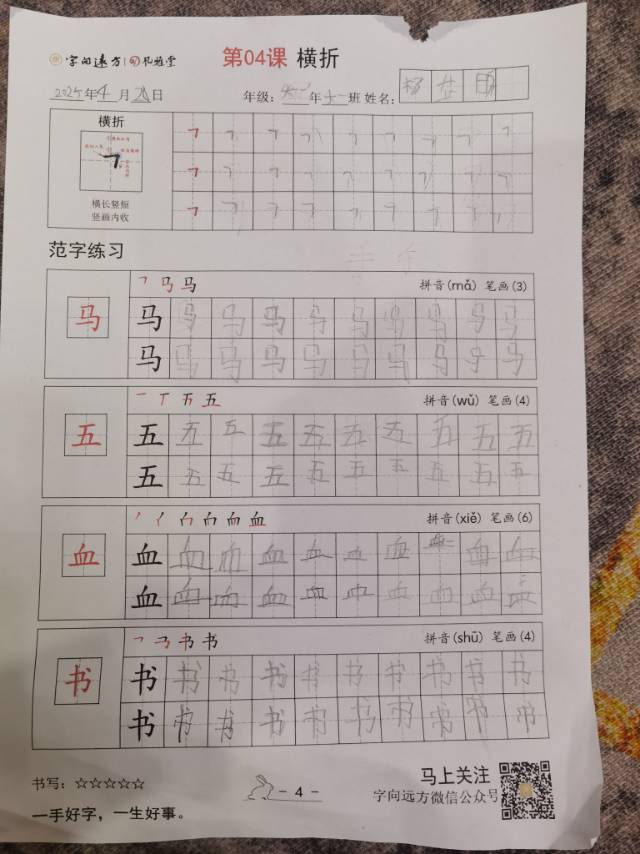 字向远方 第04课 横折
2025年4月 日 年级: 年 班 姓名:
横折
横长竖短
竖画内收
范字练习
马 拼音(mǎ) 笔画(3)
马 马 马 马 马 马 马 马 马 马
马 马 马 马 马 马 马 马 马 马
五 拼音(wǔ) 笔画(4)
五 五 五 五 五 五 五 五 五 五
五 五 五 五 五 五 五 五 五 五
血 拼音(xiě) 笔画(6)
血 血 血 血 血 血 血 血 血 血
血 血 血 血 血 血 血 血 血 血
书 拼音(shū) 笔画(4)
书 书 书 书 书 书 书 书 书 书
书 书 书 书 书 书 书 书 书 书
书写:☆☆☆☆☆ - 4 - 马上关注
字向远方微信公众号
一手好字，一生好事。